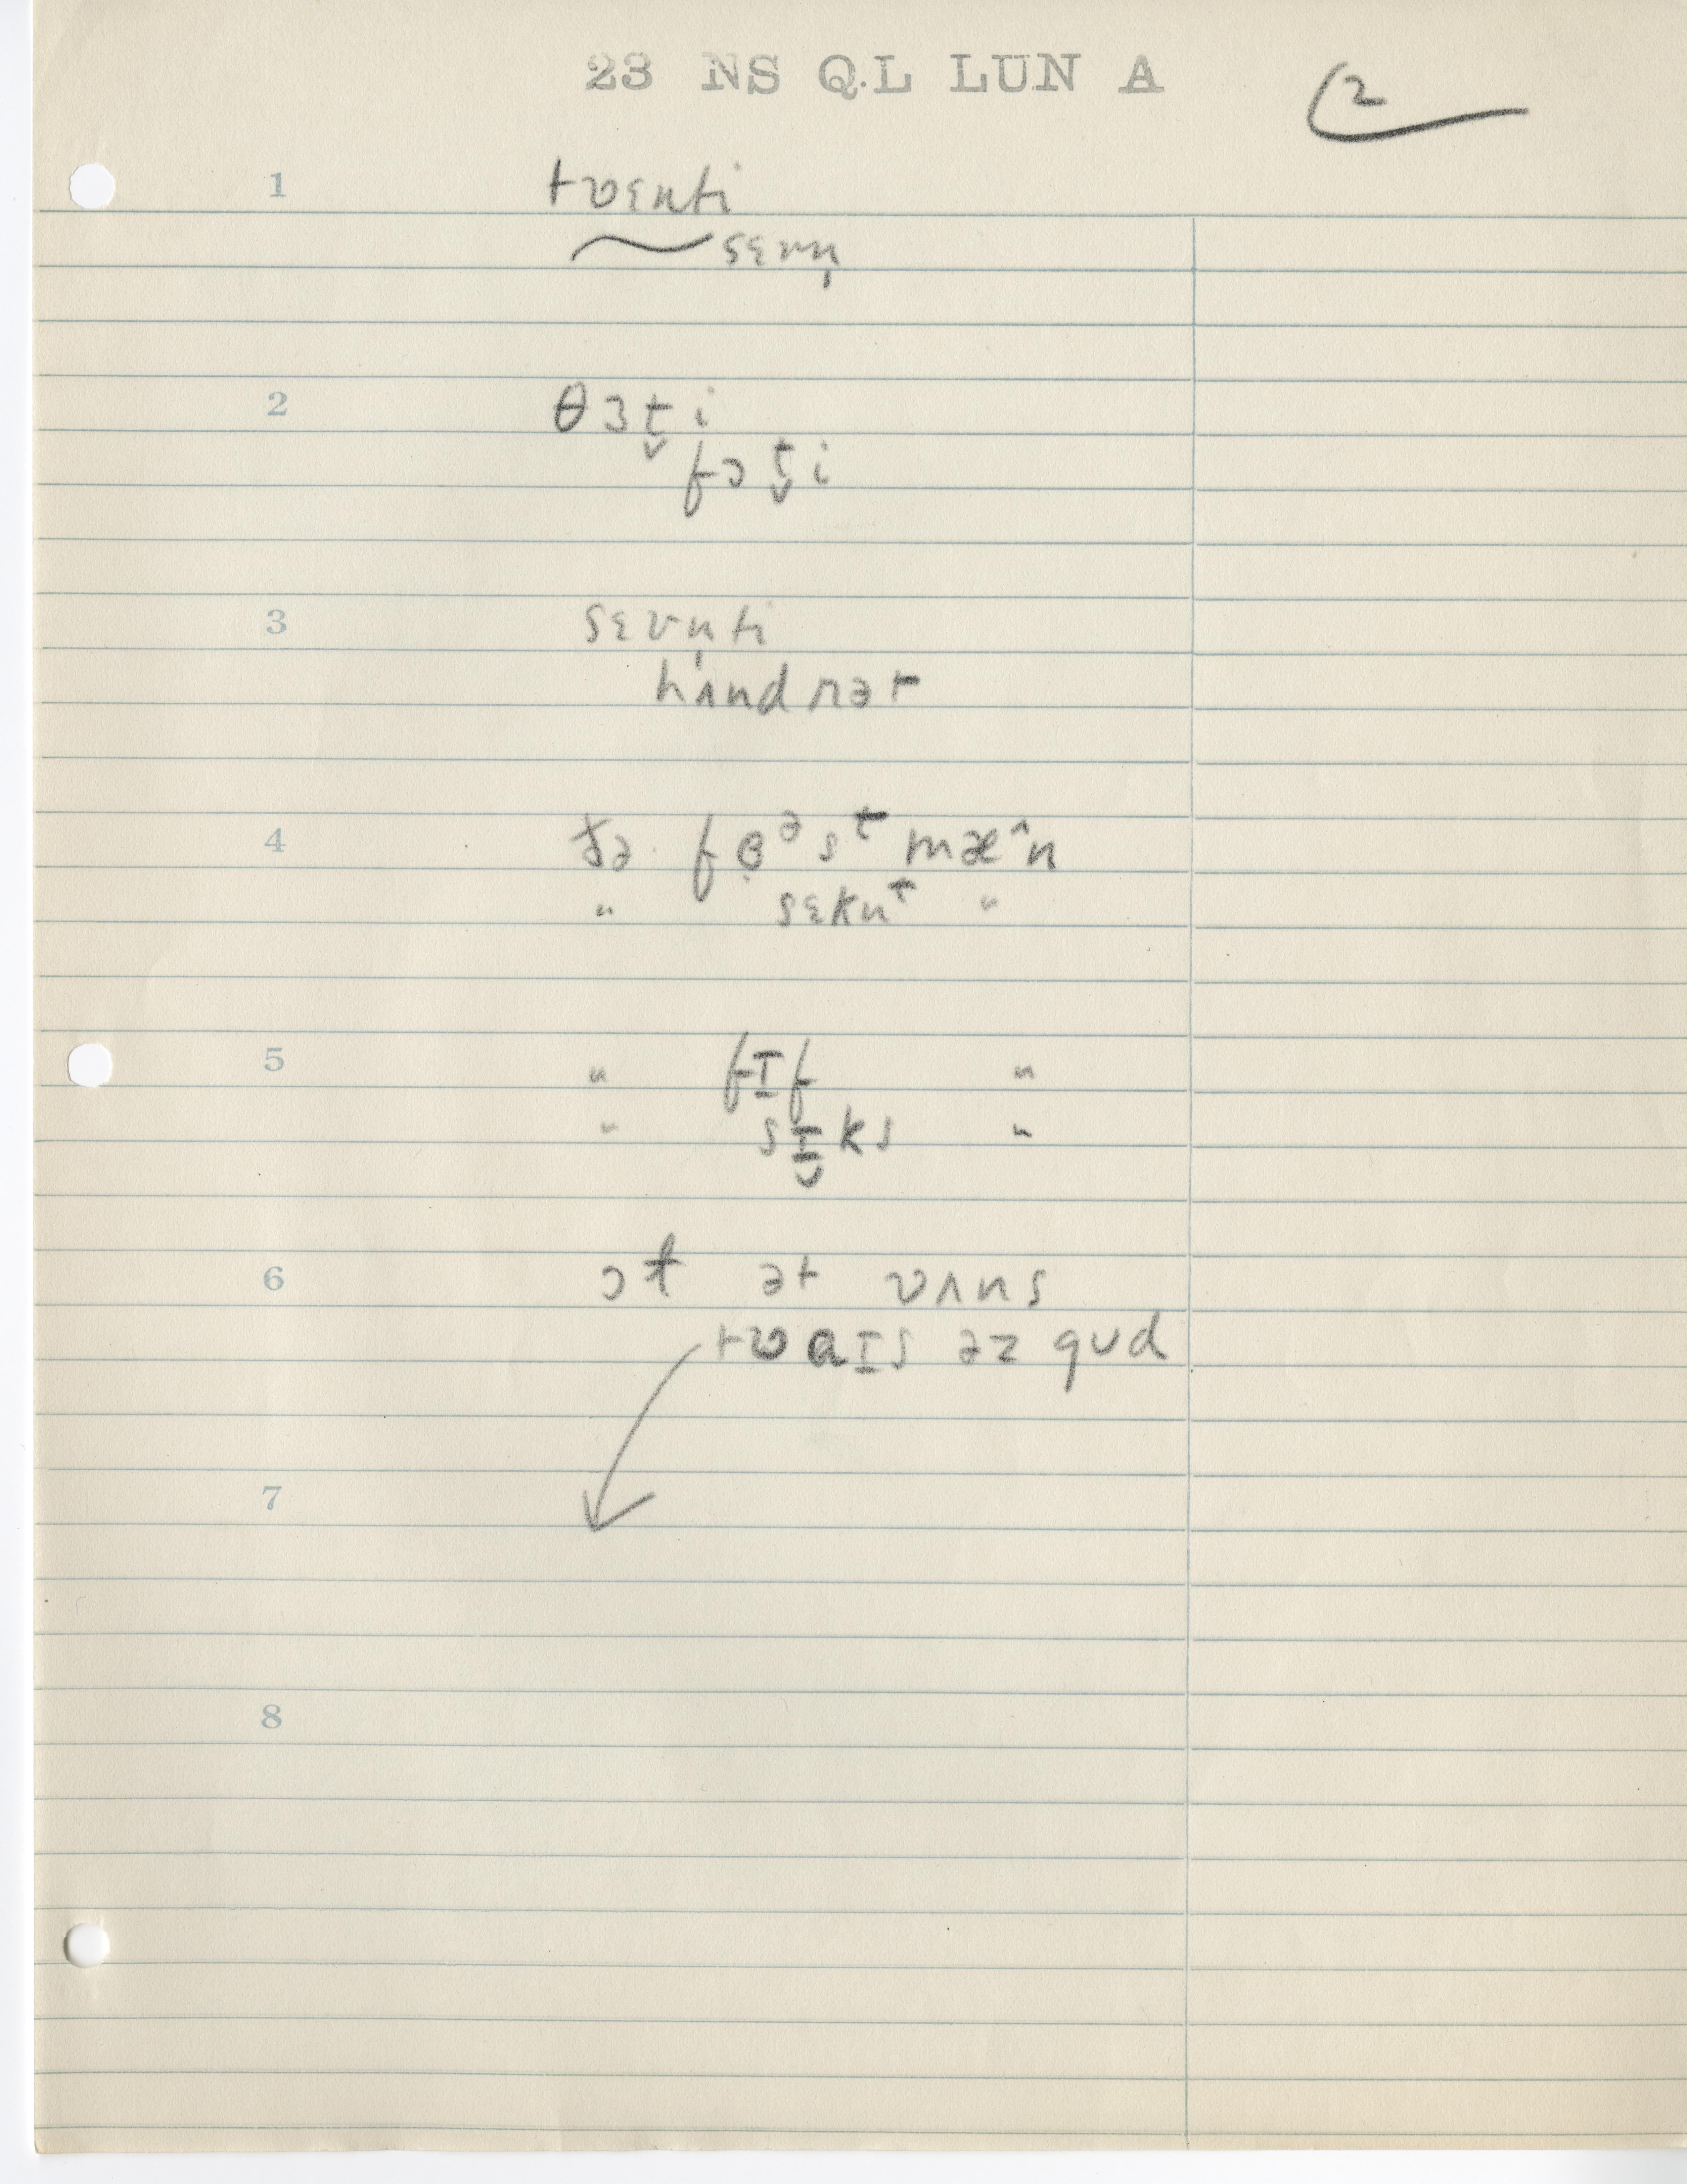 23 NS Q.L LUN A
2
1 tʋɛnti
sɛvn̩
2 θɜt̬i
fɔt̬i
3 sɛvn̩ti
hʌndrət
4 fɵ̣ᵊsᵗ mæ^n
" sɛknᵗ "
5 " fɪf "
" sɪ̬ks "
6 ət ʋʌns
tʋaɪs əz gud
7
8